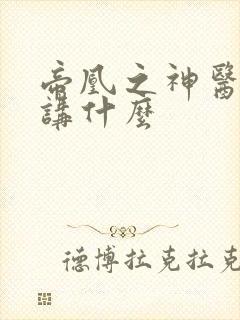 帝凰之神醫
講什麼
德博拉克拉克